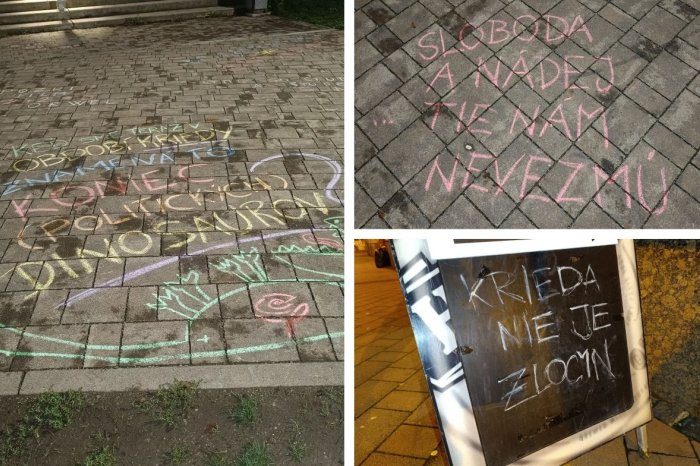 KEĎ SME TERAZ V
OBDOBÍ KRIEDY
ZNAMENÁ TO
KONIEC
(POLITICKÝCH)
DINOSAUROV
SLOBODA
A NÁDEJ
TIE NÁM
NEVEZMÚ
KRIEDA
NIE JE
ZLOČIN